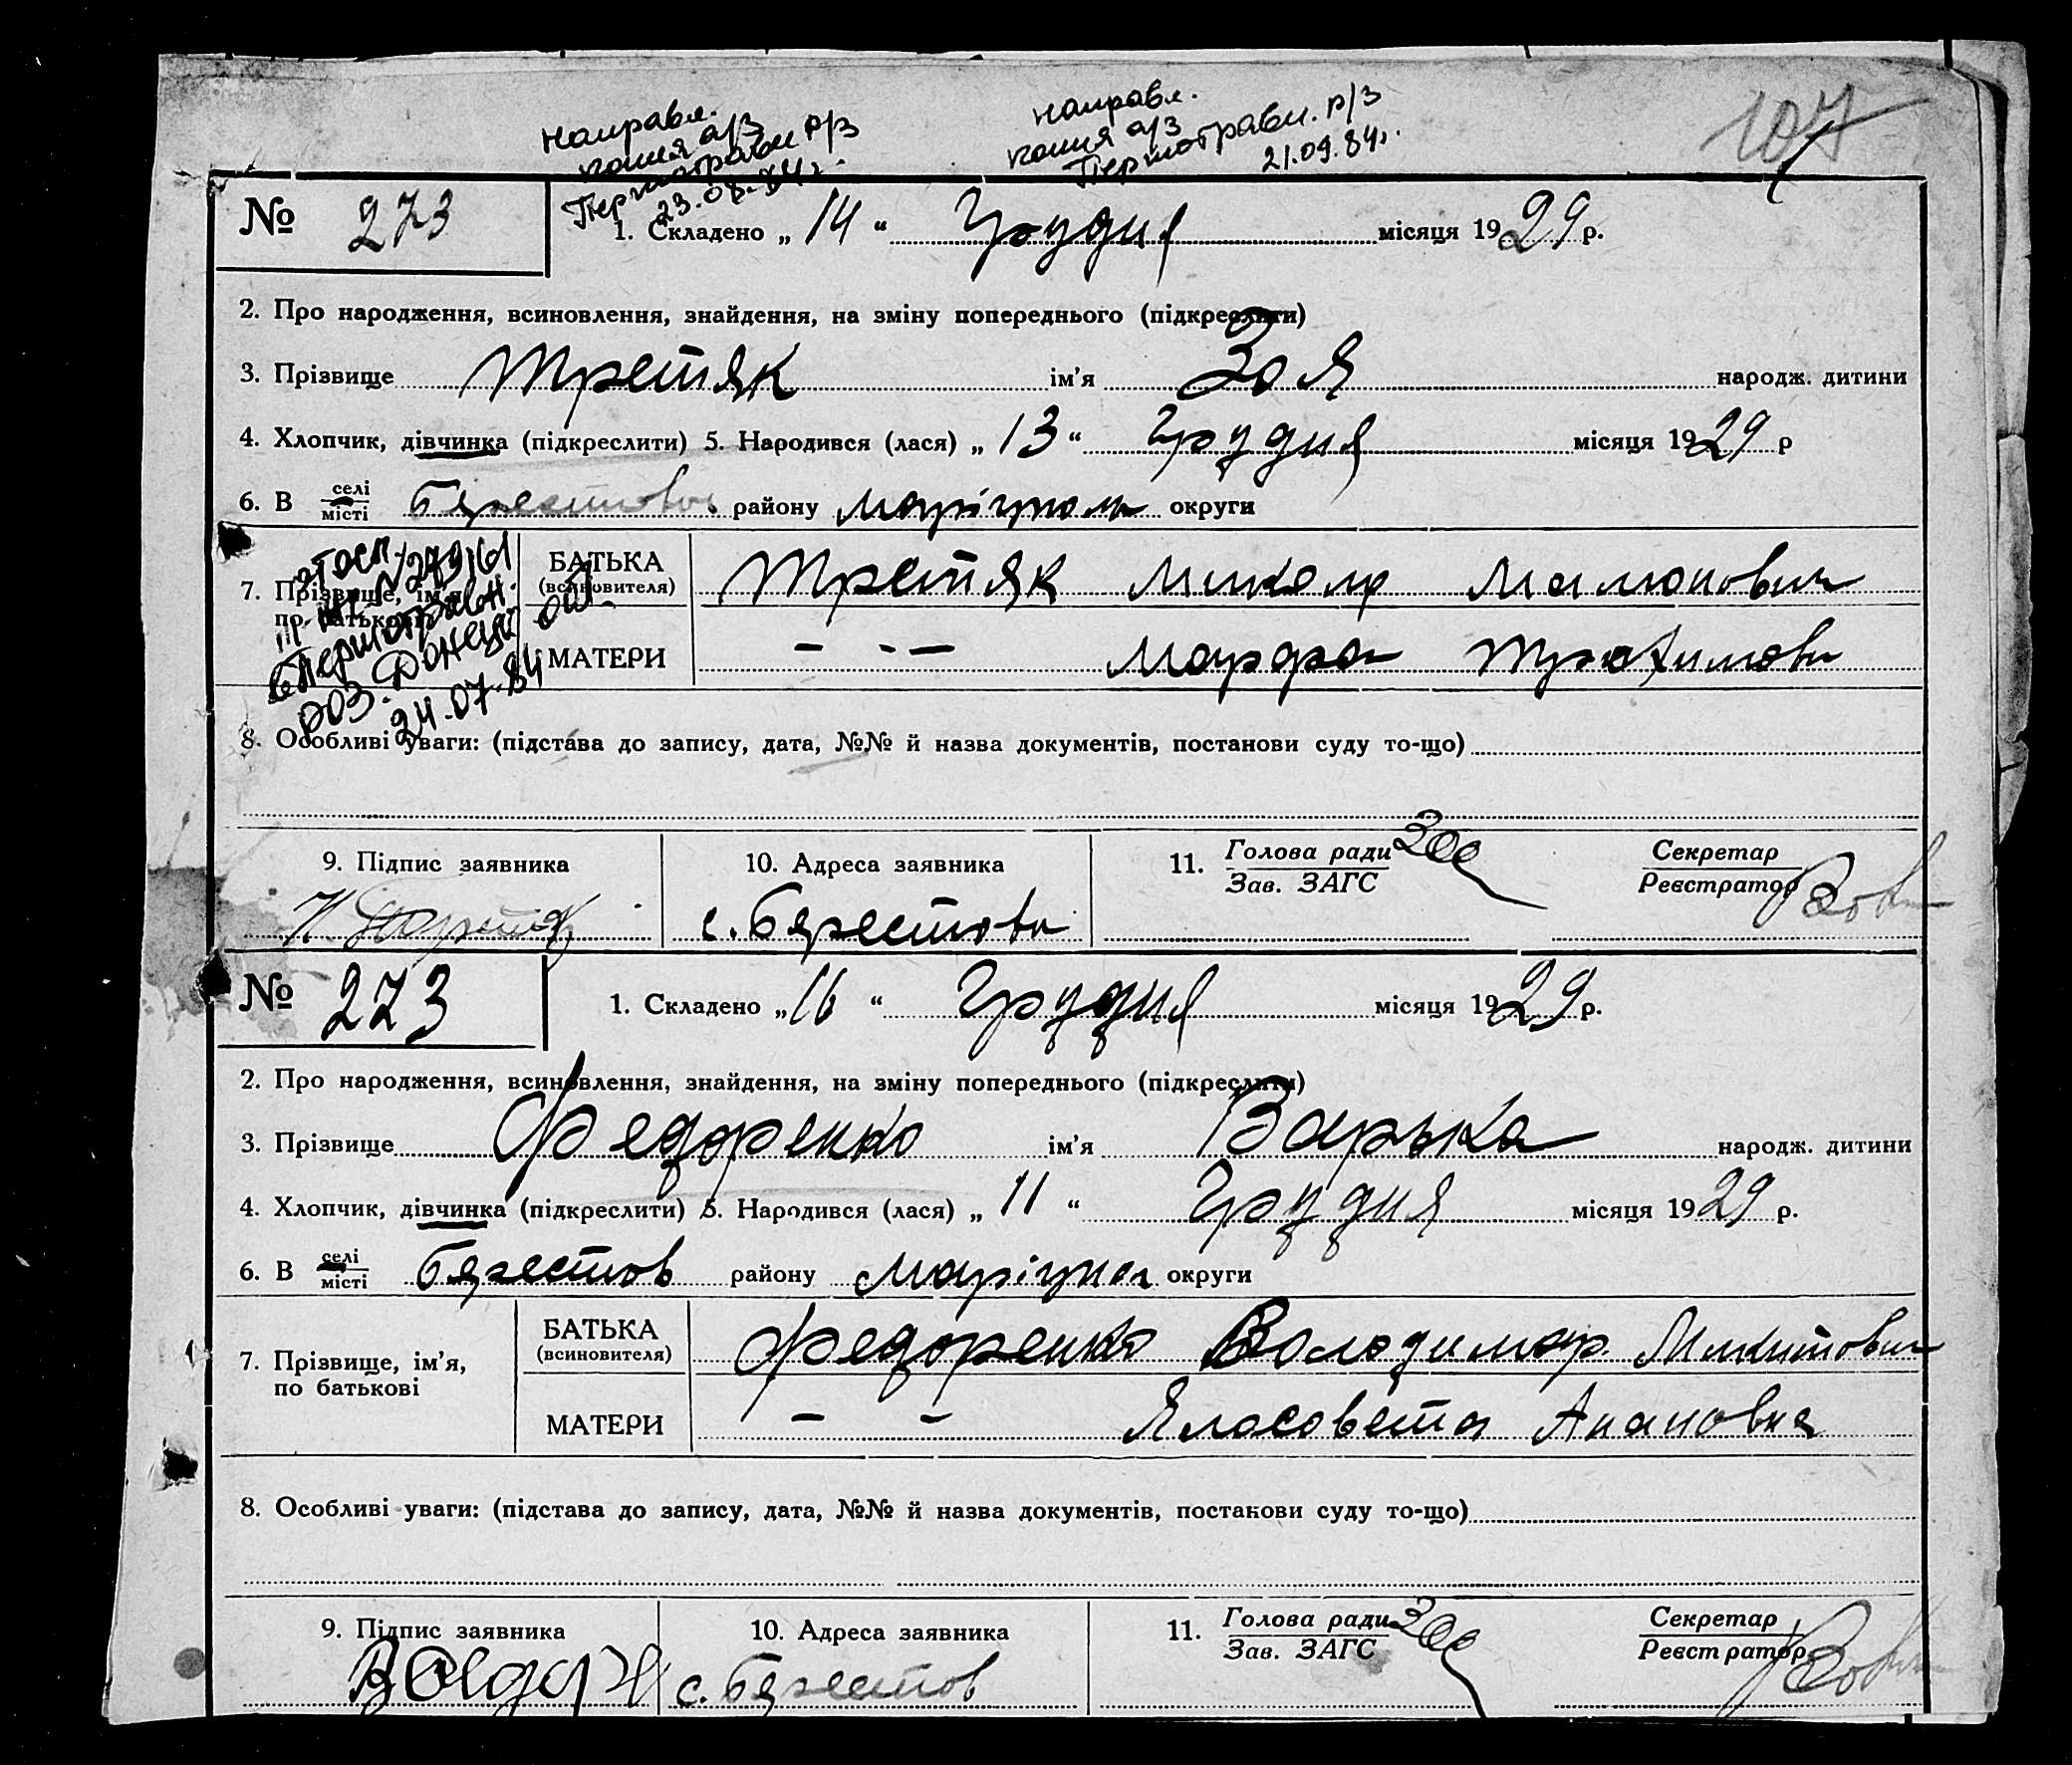 107
направл.
копия а/з
Першотравн. р/з
23.08.84г.
направл.
копия а/з
Першотравн. р/з
21.09.84г.
№ 273
1. Складено „ 14 “ Грудня місяця 1929 р.
2. Про народження, всиновлення, знайдення, на зміну попереднього (підкреслити)
3. Прізвище Третяк ім’я Зоя народж. дитини
4. Хлопчик, дівчинка (підкреслити) 5. Народився (лася) „ 13 “ Грудня місяця 1929 р
6. В селі місті Берестовом району Маріуполь округи
7. Прізвище, ім’я, по батькові
Першотравн.
РОЗ. Донецкой обл.
24.07.84
БАТЬКА (всиновителя) Третяк Микола Мамонович
МАТЕРИ — - — Марфа Трохимовн
8. Особливі уваги: (підстава до запису, дата, №№ й назва документів, постанови суду то-що)
9. Підпис заявника
Н Третяк
10. Адреса заявника
с. Берестове
11. Голова ради
Зав. ЗАГС
Секретар
Реєстратор
№ 273
1. Складено „ 16 “ Грудня місяця 1929 р.
2. Про народження, всиновлення, знайдення, на зміну попереднього (підкреслити)
3. Прізвище Федоренко ім’я Варька народж. дитини
4. Хлопчик, дівчинка (підкреслити) 5. Народився (лася) „ 11 “ Грудня місяця 1929 р.
6. В селі місті Берестов району Маріупол округи
7. Прізвище, ім’я,
по батькові
БАТЬКА (всиновителя) Федоренко Володимар Микитович
МАТЕРИ — — Яласовета Анановна
8. Особливі уваги: (підстава до запису, дата, №№ й назва документів, постанови суду то-що)
9. Підпис заявника
10. Адреса заявника
с. Берестов
11. Голова ради
Зав. ЗАГС
Секретар
Реєстратор